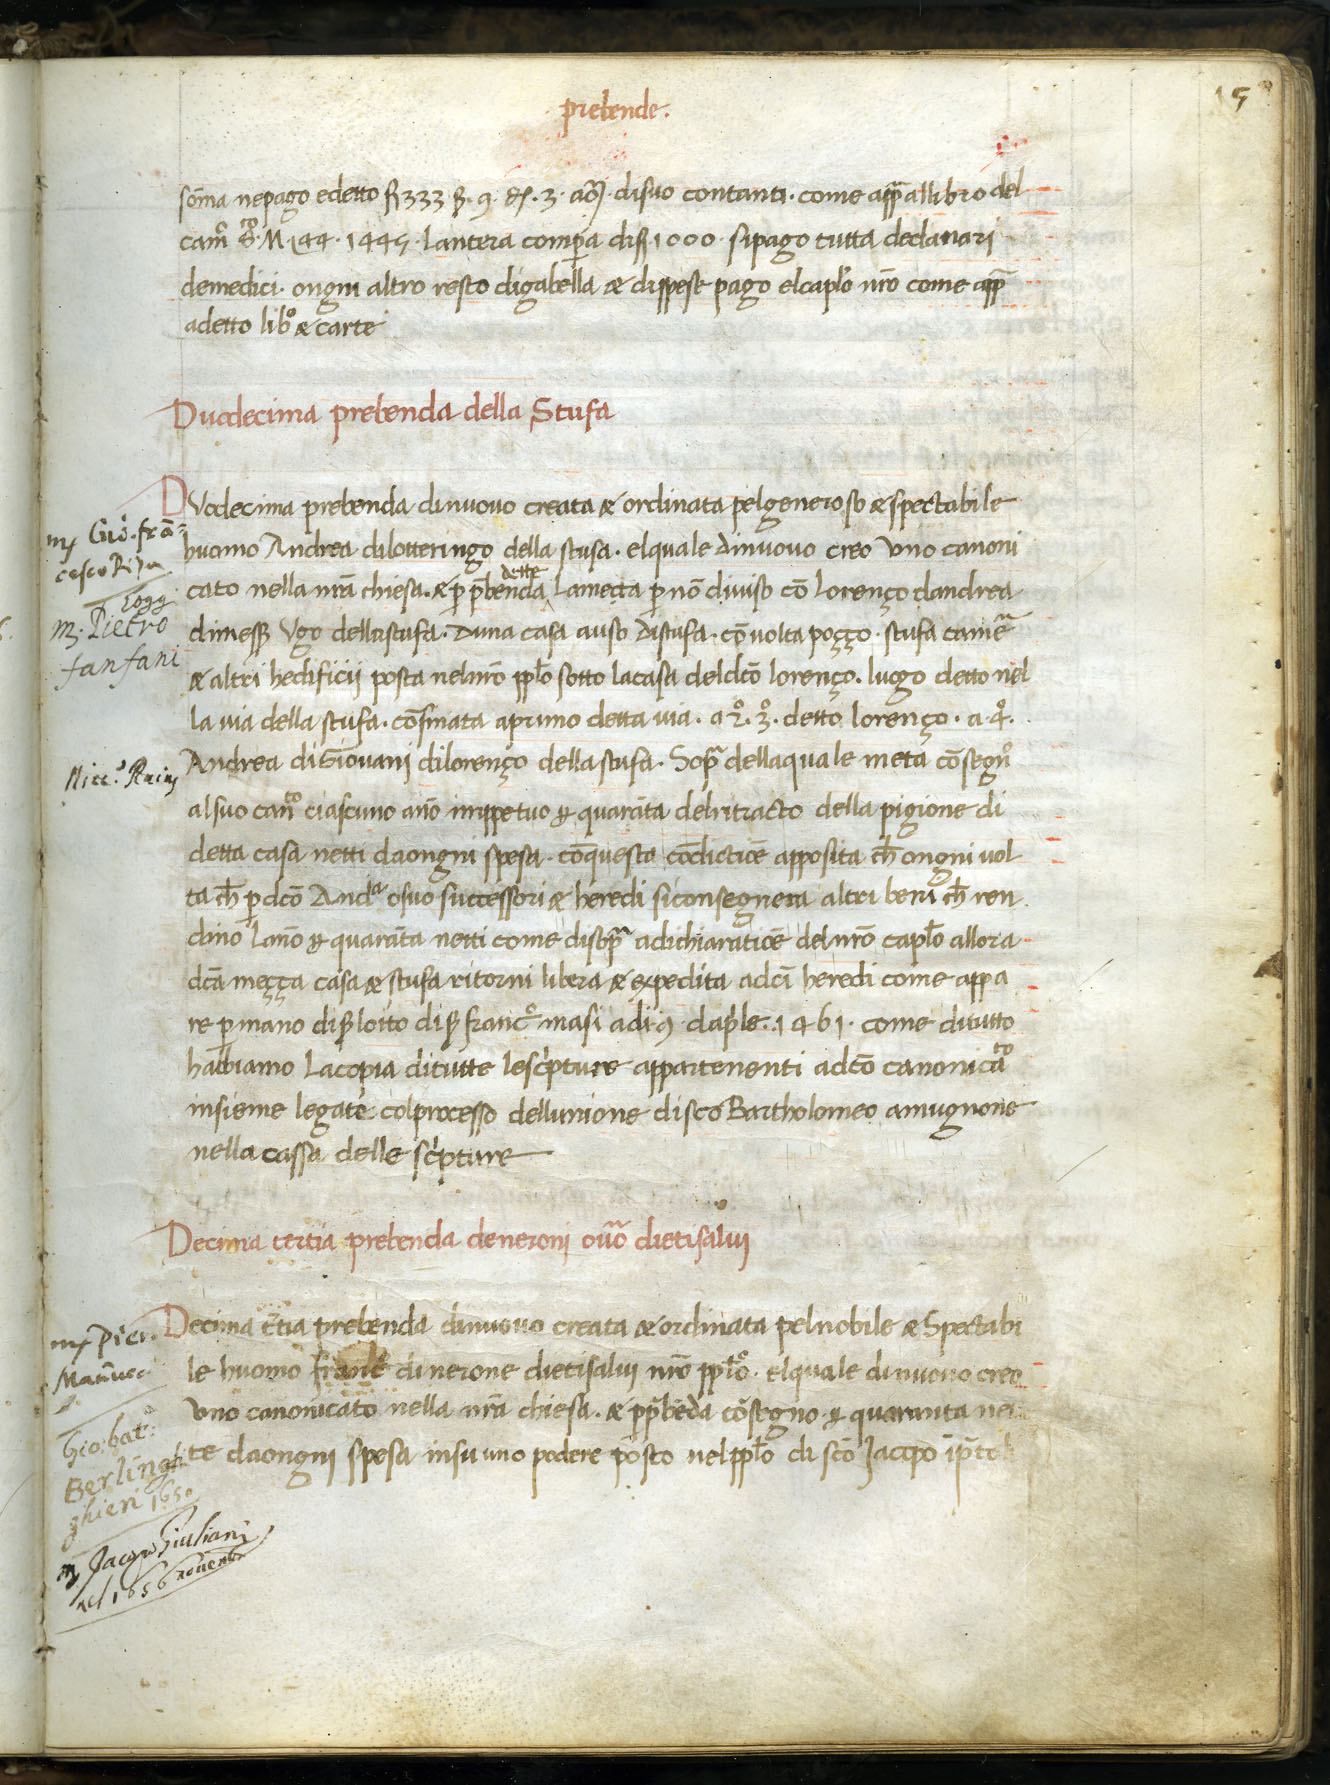 prebende.
15
som̄a nepago edetto fi 333 ß. 9. đ. 3. disuo contanti. come app̄a allibro del
cam̊ 144. 1445. Lantera comp̄a difi 1000. sipago tutta dedanari
demedici. ongni altro resto digabella & dispese pago elcap̄lo nr̄o come app̄
adetto libo & carte
Duodecima prebenda della Stufa
DVodecima prebenda dinuovo creata & ordinata pelgeneroso & spectabile
huomo Andrea dilotteringo della stufa. elquale dinuovo creo Vno canoni
cato nella nr̄a chiesa. & p̄ p̄benda dette Lameta p̄ nō diuiso cō Lorenço dandrea
dimess̄ Vgo dellastufa. Duna casa auso distufa. cōvolta poçço. stufa camēa
& altri hedificii posta nelnr̄o pp̄lo sotto lacasa deldc̄o lorenço. luogo detto nel
la uia della stufa. cōfinata aprimo detta uia. a 2o. 3o. detto lorenço. a. 4o.
Andrea diGiouani dilorenço dellastufa. Sop̄a dellaquale meta cōsegno
alsuo canco ciascuno an̄o imppetuo fi quarāta delritracto della pigione di
detta casa netti daongni spesa. cōquesta cōdictiōe apposita ch̄ ongni uol
ta ch̄ p̄ dc̄o Anda osuo successori & heredi siconsegnera altri beni ch̄ ren
dino Lan̄o fi quarāta netti come disop̄a adichiaratiōe delnr̄o cap̄lo allora
dc̄a meçça casa & stufa ritorni libera & expedita adc̄i heredi come appa
re p̄ mano diß loito diß franco masi adi 9 dap̄le. 1461. come ditutto
habbiamo Lacopia ditutte lesc̄pture appartenenti adc̄o canonicato
insieme legate colprocesso dellunione disc̄o Bartholomeo amugnone
nella cassa delle sc̄pture
Decima tertia prebenda deneroni ouō dietisalui
Decima t̄tia prebenda dinuouo creata & ordinata pelnobile & Spectabi
le huomo franco dinerone dietisalui nr̄o pp̄lo. elquale dinuouo creo
Vno canonicato nella nr̄a chiesa. & p̄ p̄bēda cōsegno fi quaranta net
te daongni spesa insu uno podere posto nelpp̄lo di sc̄o Jacopo
mr Gio. frā=
cesco
M. Pietro
fanfani
Nicc.o
mr Pier.
Mannucc
Gio: bat.a
Berling
ghieri 1650
Jacopo Giuliani
nel 1656 nouembr